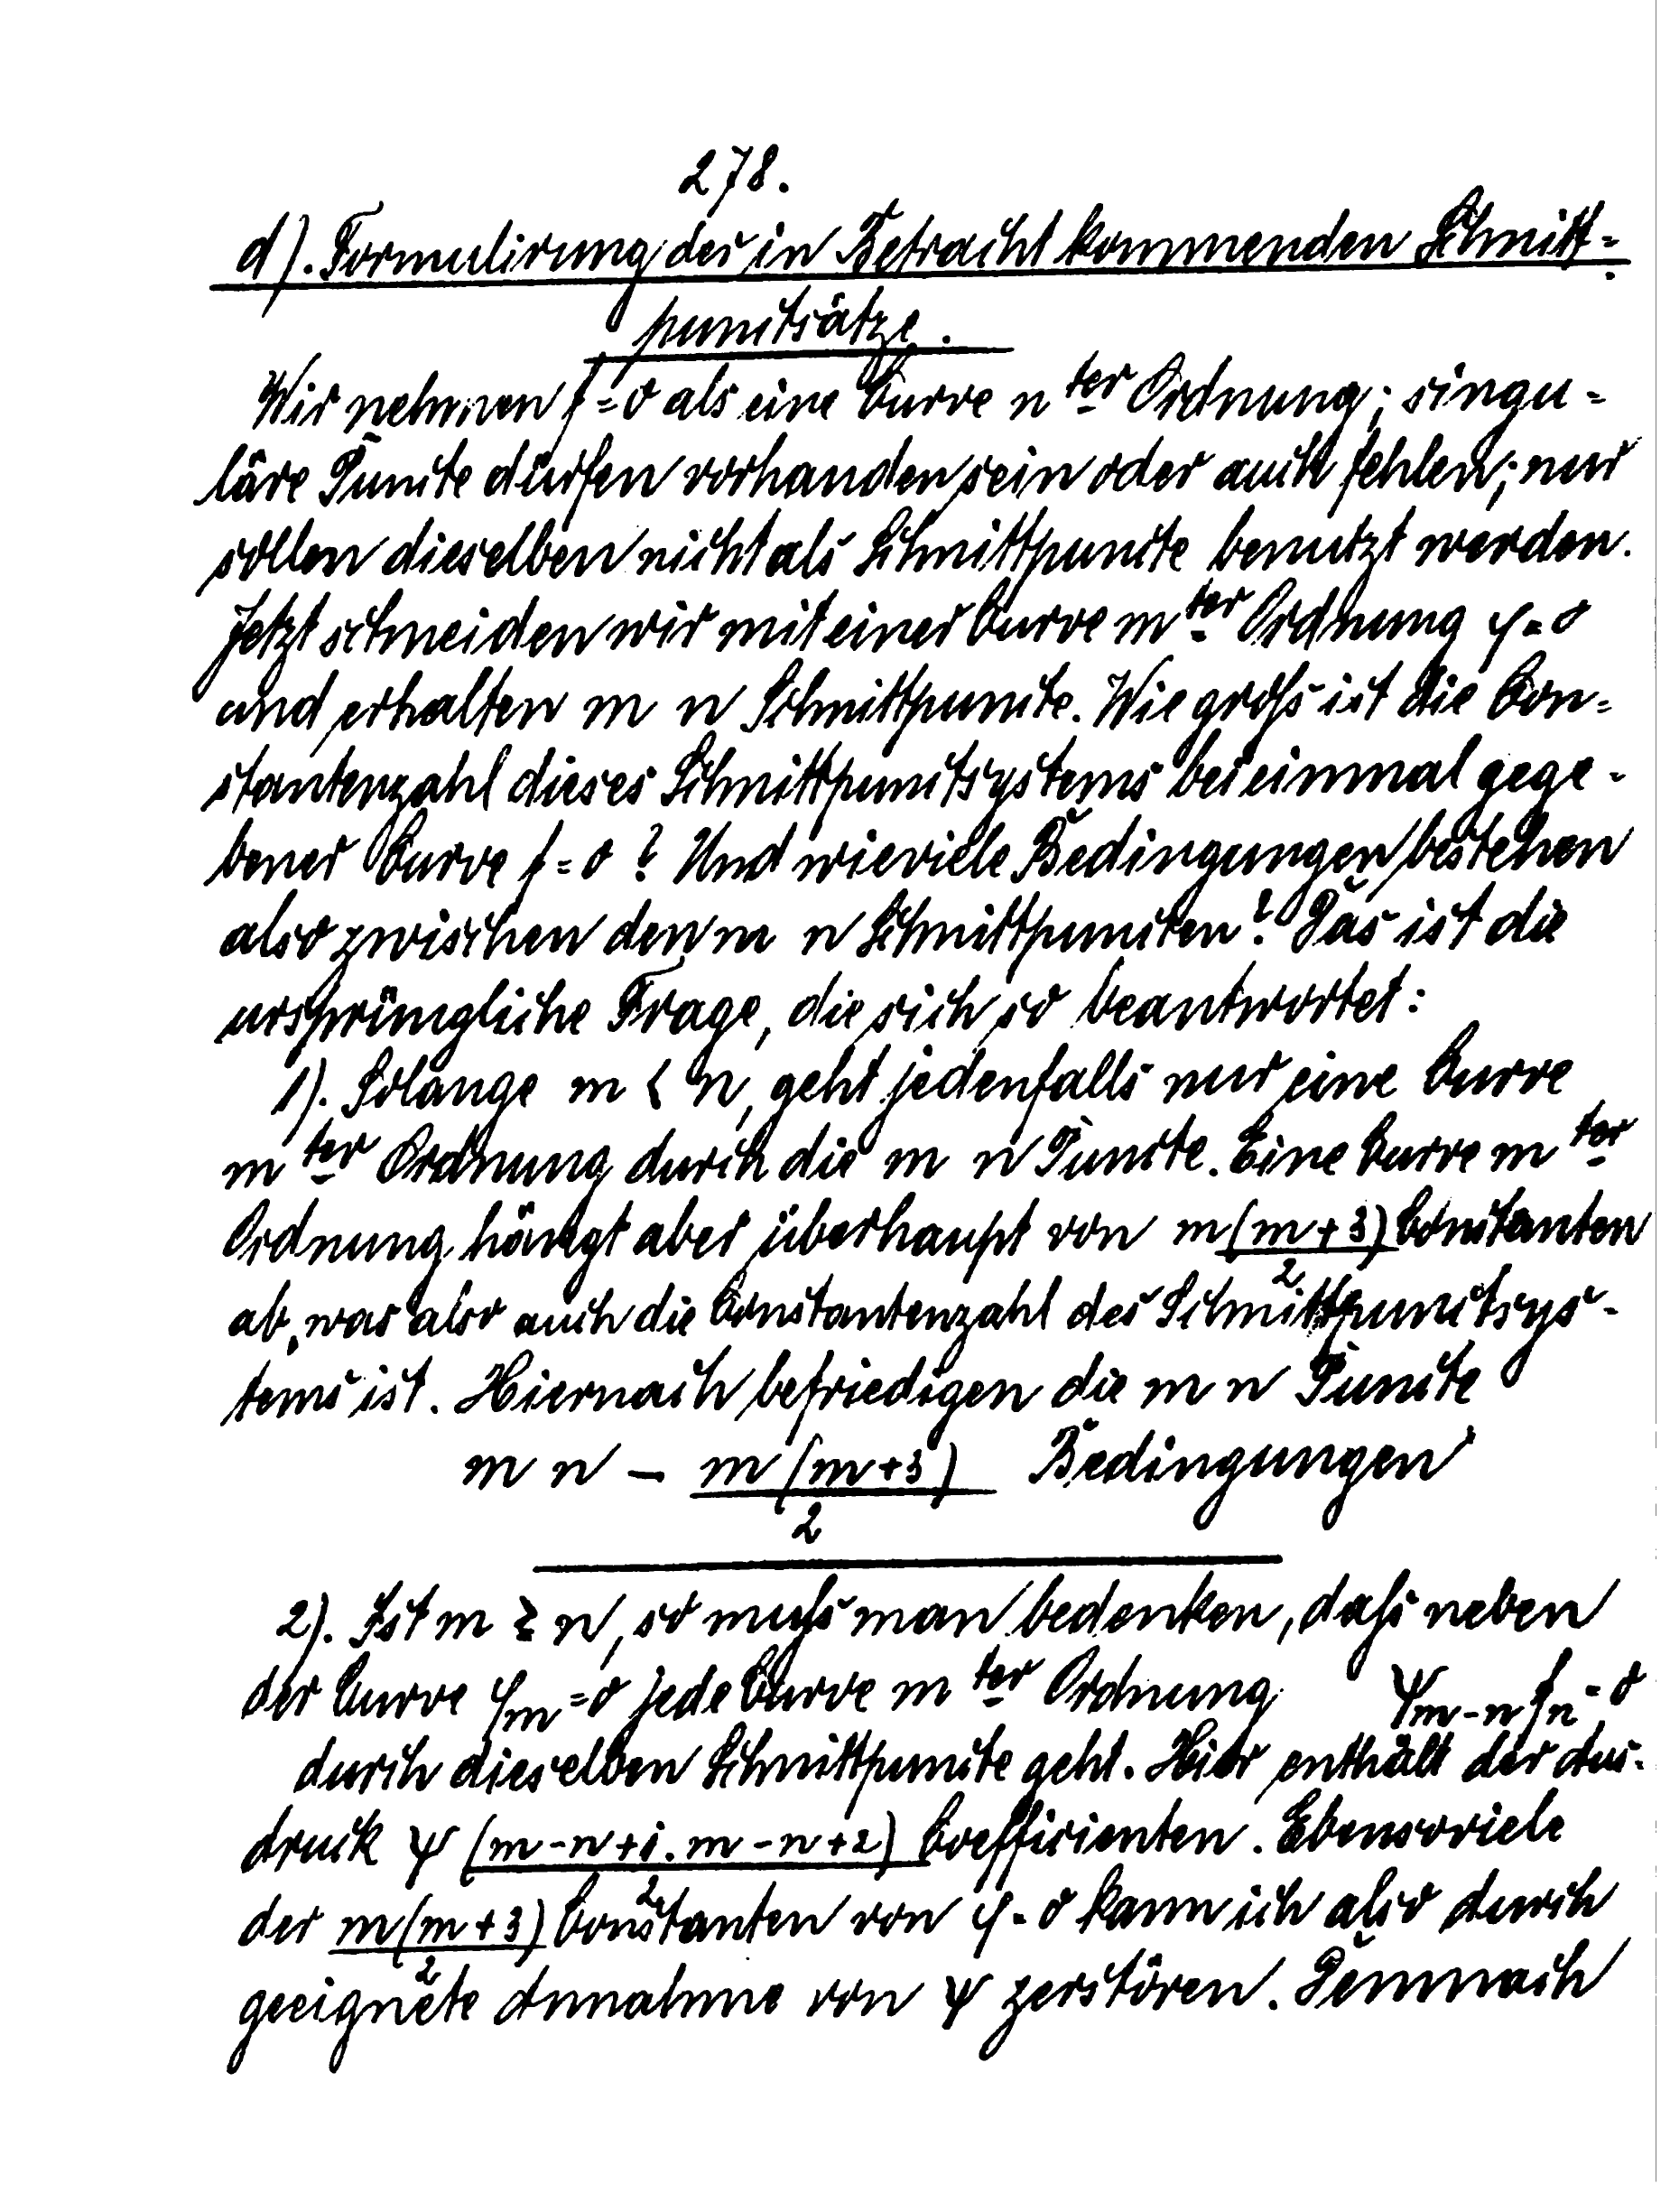 278.
d). Formulirung der in Betracht kommenden Schnitt-
punctsätze.
Wir nehmen f=0 als eine Curve n ter Ordnung; singu-
läre Puncte dürfen vorhanden sein oder auch fehlen; nur
sollen dieselben nicht als Schnittpuncte benutzt werden.
Jetzt schneiden wir mit einer Curve m ter Ordnung φ=0
und erhalten m n Schnittpuncte. Wie groß ist die Con-
stantenzahl dieses Schnittpunctsystems bei einmal gege-
bener Curve f=0? Und wieviele Bedingungen bestehen
also zwischen den m n Schnittpuncten? Das ist die
ursprüngliche Frage, die sich so beantwortet:
1). Solange m < n, geht jedenfalls nur eine Curve
m ter Ordnung durch die m n Puncte. Eine Curve m ter
Ordnung hängt aber überhaupt von m(m+3)/2 Constanten
ab, was also auch die Constantenzahl des Schnittpunctsys-
tems ist. Hiernach befriedigen die m n Puncte
m n - m(m+3)/2 Bedingungen
2). Ist m ≧ n, so muß man bedenken, daß neben
der Curve φm=0 jede Curve m ter Ordnung ψm-n fn=0
durch dieselben Schnittpuncte geht. Hier enthält der Aus-
druck ψ (m-n+1. m-n+2)/2 Coefficienten. Ebensoviele
der m(m+3)/2 Constanten von φ=0 kann ich also durch
geeignete Annahme von ψ zerstören. Demnach